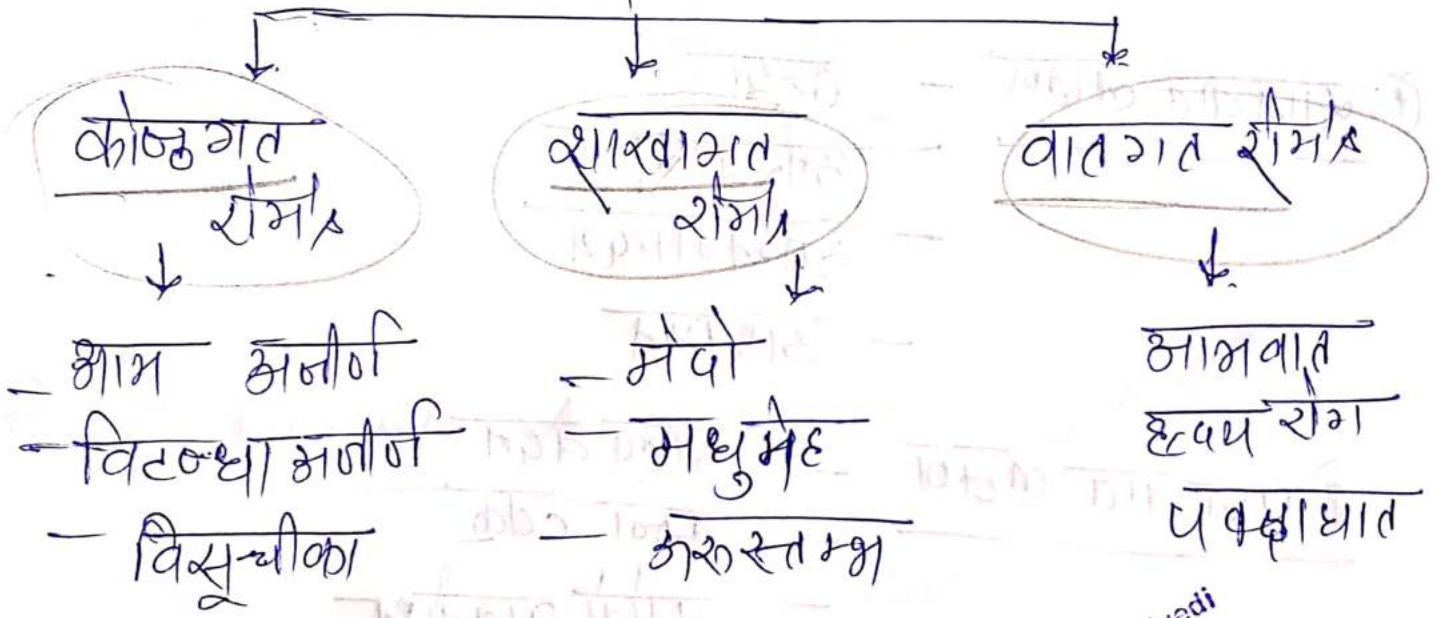 कोष्ठगत
रोग
शाखागत
रोग
वातगत रोग
- आम अजीर्ण
- विटब्धा अजीर्ण
- विसूचीका
- मेदो
- मधुमेह
- ऊरुस्तम्भ
आमवात
हृदय रोग
पक्षाघात